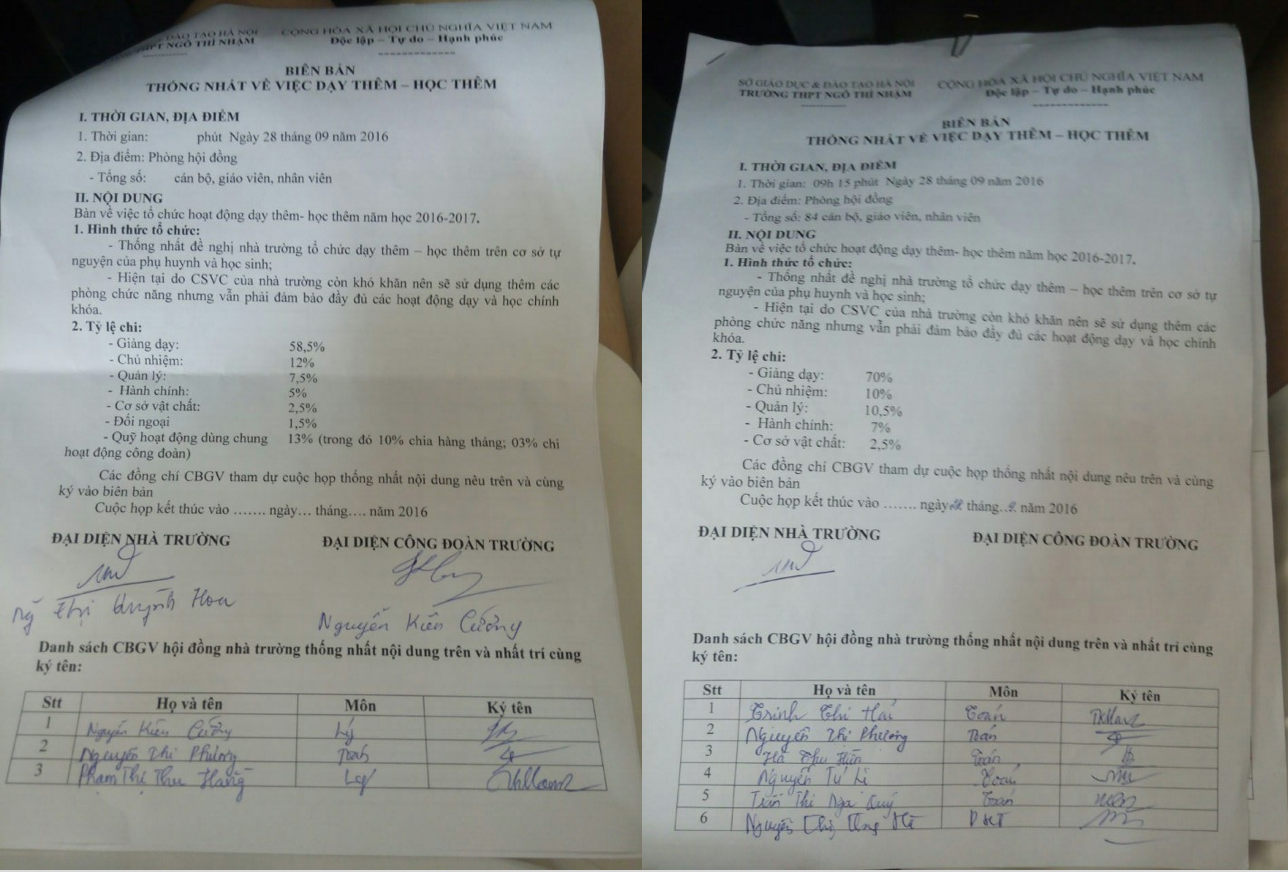 ĐÀO TẠO HÀ NỘI CỘNG HÒA XÃ HỘI CHỦ NGHĨA VIỆT NAM
THPT NGÔ THÌ NHẬM Độc lập – Tự do – Hạnh phúc
BIÊN BẢN
THỐNG NHẤT VỀ VIỆC DẠY THÊM – HỌC THÊM
I. THỜI GIAN, ĐỊA ĐIỂM
1. Thời gian: phút Ngày 28 tháng 09 năm 2016
2. Địa điểm: Phòng hội đồng
- Tổng số: cán bộ, giáo viên, nhân viên
II. NỘI DUNG
Bàn về việc tổ chức hoạt động dạy thêm- học thêm năm học 2016-2017.
1. Hình thức tổ chức:
- Thống nhất đề nghị nhà trường tổ chức dạy thêm – học thêm trên cơ sở tự
nguyện của phụ huynh và học sinh;
- Hiện tại do CSVC của nhà trường còn khó khăn nên sẽ sử dụng thêm các
phòng chức năng nhưng vẫn phải đảm bảo đầy đủ các hoạt động dạy và học chính
khóa.
2. Tỷ lệ chi:
- Giảng dạy: 58,5%
- Chủ nhiệm: 12%
- Quản lý: 7,5%
- Hành chính: 5%
- Cơ sở vật chất: 2,5%
- Đối ngoại 1,5%
- Quỹ hoạt động dùng chung 13% (trong đó 10% chia hàng tháng; 03% chi
hoạt động công đoàn)
Các đồng chí CBGV tham dự cuộc họp thống nhất nội dung nêu trên và cùng
ký vào biên bản
Cuộc họp kết thúc vào ……. ngày… tháng…. năm 2016
ĐẠI DIỆN NHÀ TRƯỜNG ĐẠI DIỆN CÔNG ĐOÀN TRƯỜNG
Ng Thị Quỳnh Hoa
Nguyễn Kiên Cường
Danh sách CBGV hội đồng nhà trường thống nhất nội dung trên và nhất trí cùng
ký tên:
Stt Họ và tên Môn Ký tên
1 Nguyễn Kiên Cường Lý
2 Nguyễn Thị Phương Toán
3 Phạm Thị Thu Hằng Lý
SỞ GIÁO DỤC & ĐÀO TẠO HÀ NỘI CỘNG HÒA XÃ HỘI CHỦ NGHĨA VIỆT NAM
TRƯỜNG THPT NGÔ THÌ NHẬM Độc lập – Tự do – Hạnh phúc
BIÊN BẢN
THỐNG NHẤT VỀ VIỆC DẠY THÊM – HỌC THÊM
I. THỜI GIAN, ĐỊA ĐIỂM
1. Thời gian: 09h 15 phút Ngày 28 tháng 09 năm 2016
2. Địa điểm: Phòng hội đồng
- Tổng số: 84 cán bộ, giáo viên, nhân viên
II. NỘI DUNG
Bàn về việc tổ chức hoạt động dạy thêm- học thêm năm học 2016-2017.
1. Hình thức tổ chức:
- Thống nhất đề nghị nhà trường tổ chức dạy thêm – học thêm trên cơ sở tự
nguyện của phụ huynh và học sinh;
- Hiện tại do CSVC của nhà trường còn khó khăn nên sẽ sử dụng thêm các
phòng chức năng nhưng vẫn phải đảm bảo đầy đủ các hoạt động dạy và học chính
khóa.
2. Tỷ lệ chi:
- Giảng dạy: 70%
- Chủ nhiệm: 10%
- Quản lý: 10,5%
- Hành chính: 7%
- Cơ sở vật chất: 2,5%
Các đồng chí CBGV tham dự cuộc họp thống nhất nội dung nêu trên và cùng
ký vào biên bản
Cuộc họp kết thúc vào ……. ngày 28 tháng..9. năm 2016
ĐẠI DIỆN NHÀ TRƯỜNG ĐẠI DIỆN CÔNG ĐOÀN TRƯỜNG
Danh sách CBGV hội đồng nhà trường thống nhất nội dung trên và nhất trí cùng
ký tên:
Stt Họ và tên Môn Ký tên
1 Trịnh Thị Hải Toán
2 Nguyễn Thị Phương Toán
3 Hà Thu Hiền Toán
4 Nguyễn Tú Toán
5 Trần Thị Nga Quý Toán
6 Nguyễn Thị